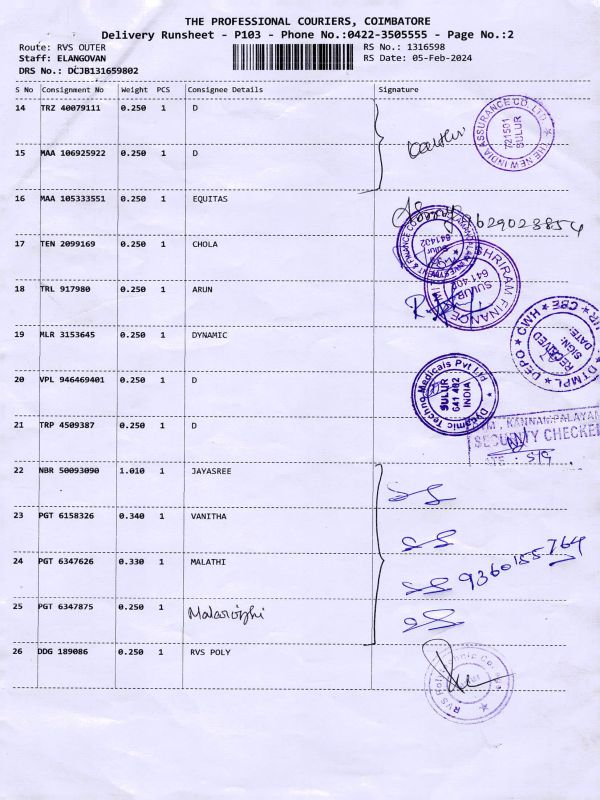 THE PROFESSIONAL COURIERS, COIMBATORE
Delivery Runsheet - P103 - Phone No.:0422-3505555 - Page No.:2
Route: RVS OUTER RS No.: 1316598
Staff: ELANGOVAN RS Date: 05-Feb-2024
DRS No.: DCJB131659802
S No Consignment No Weight PCS Consignee Details Signature
14 TRZ 40079111 0.250 1 D
THE NEW INDIA ASSURANCE CO. LTD. 721501 SULUR
15 MAA 106925922 0.250 1 D
16 MAA 105333551 0.250 1 EQUITAS
9629023854
17 TEN 2099169 0.250 1 CHOLA
641402
SHRIRAM FINANCE SULUR
18 TRL 917980 0.250 1 ARUN
19 MLR 3153645 0.250 1 DYNAMIC
DTMPL DEPO CWH RECEIVED SIGN: DATE:
20 VPL 946469401 0.250 1 D
Dynamic Techno Medicals Pvt Ltd SULUR 641 402 INDIA
21 TRP 4509387 0.250 1 D
KANNAMPALAYAM
SECURITY CHECKED
22 NBR 50093090 1.010 1 JAYASREE
23 PGT 6158326 0.340 1 VANITHA
24 PGT 6347626 0.330 1 MALATHI
9360155764
25 PGT 6347875 0.250 1
26 DDG 189086 0.250 1 RVS POLY